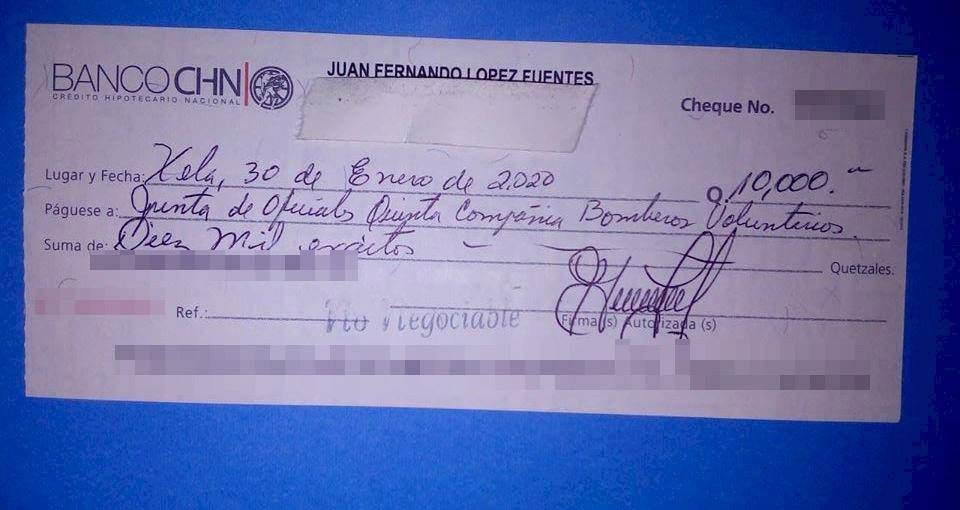 BANCO CHN
CRÉDITO HIPOTECARIO NACIONAL
JUAN FERNANDO LOPEZ FUENTES
Cheque No.
Lugar y Fecha: Xela, 30 de Enero de 2,020 Q. 10,000.—
Páguese a: Junta de Oficiales Quinta Compañia Bomberos Voluntarios.
Suma de: Diez Mil exactos — Quetzales.
Ref.: No Negociable
Firma(s) Autorizada (s)